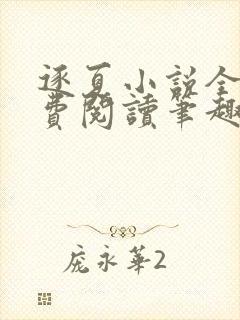 逐夏小說全
費閱讀筆趣
龐永華2